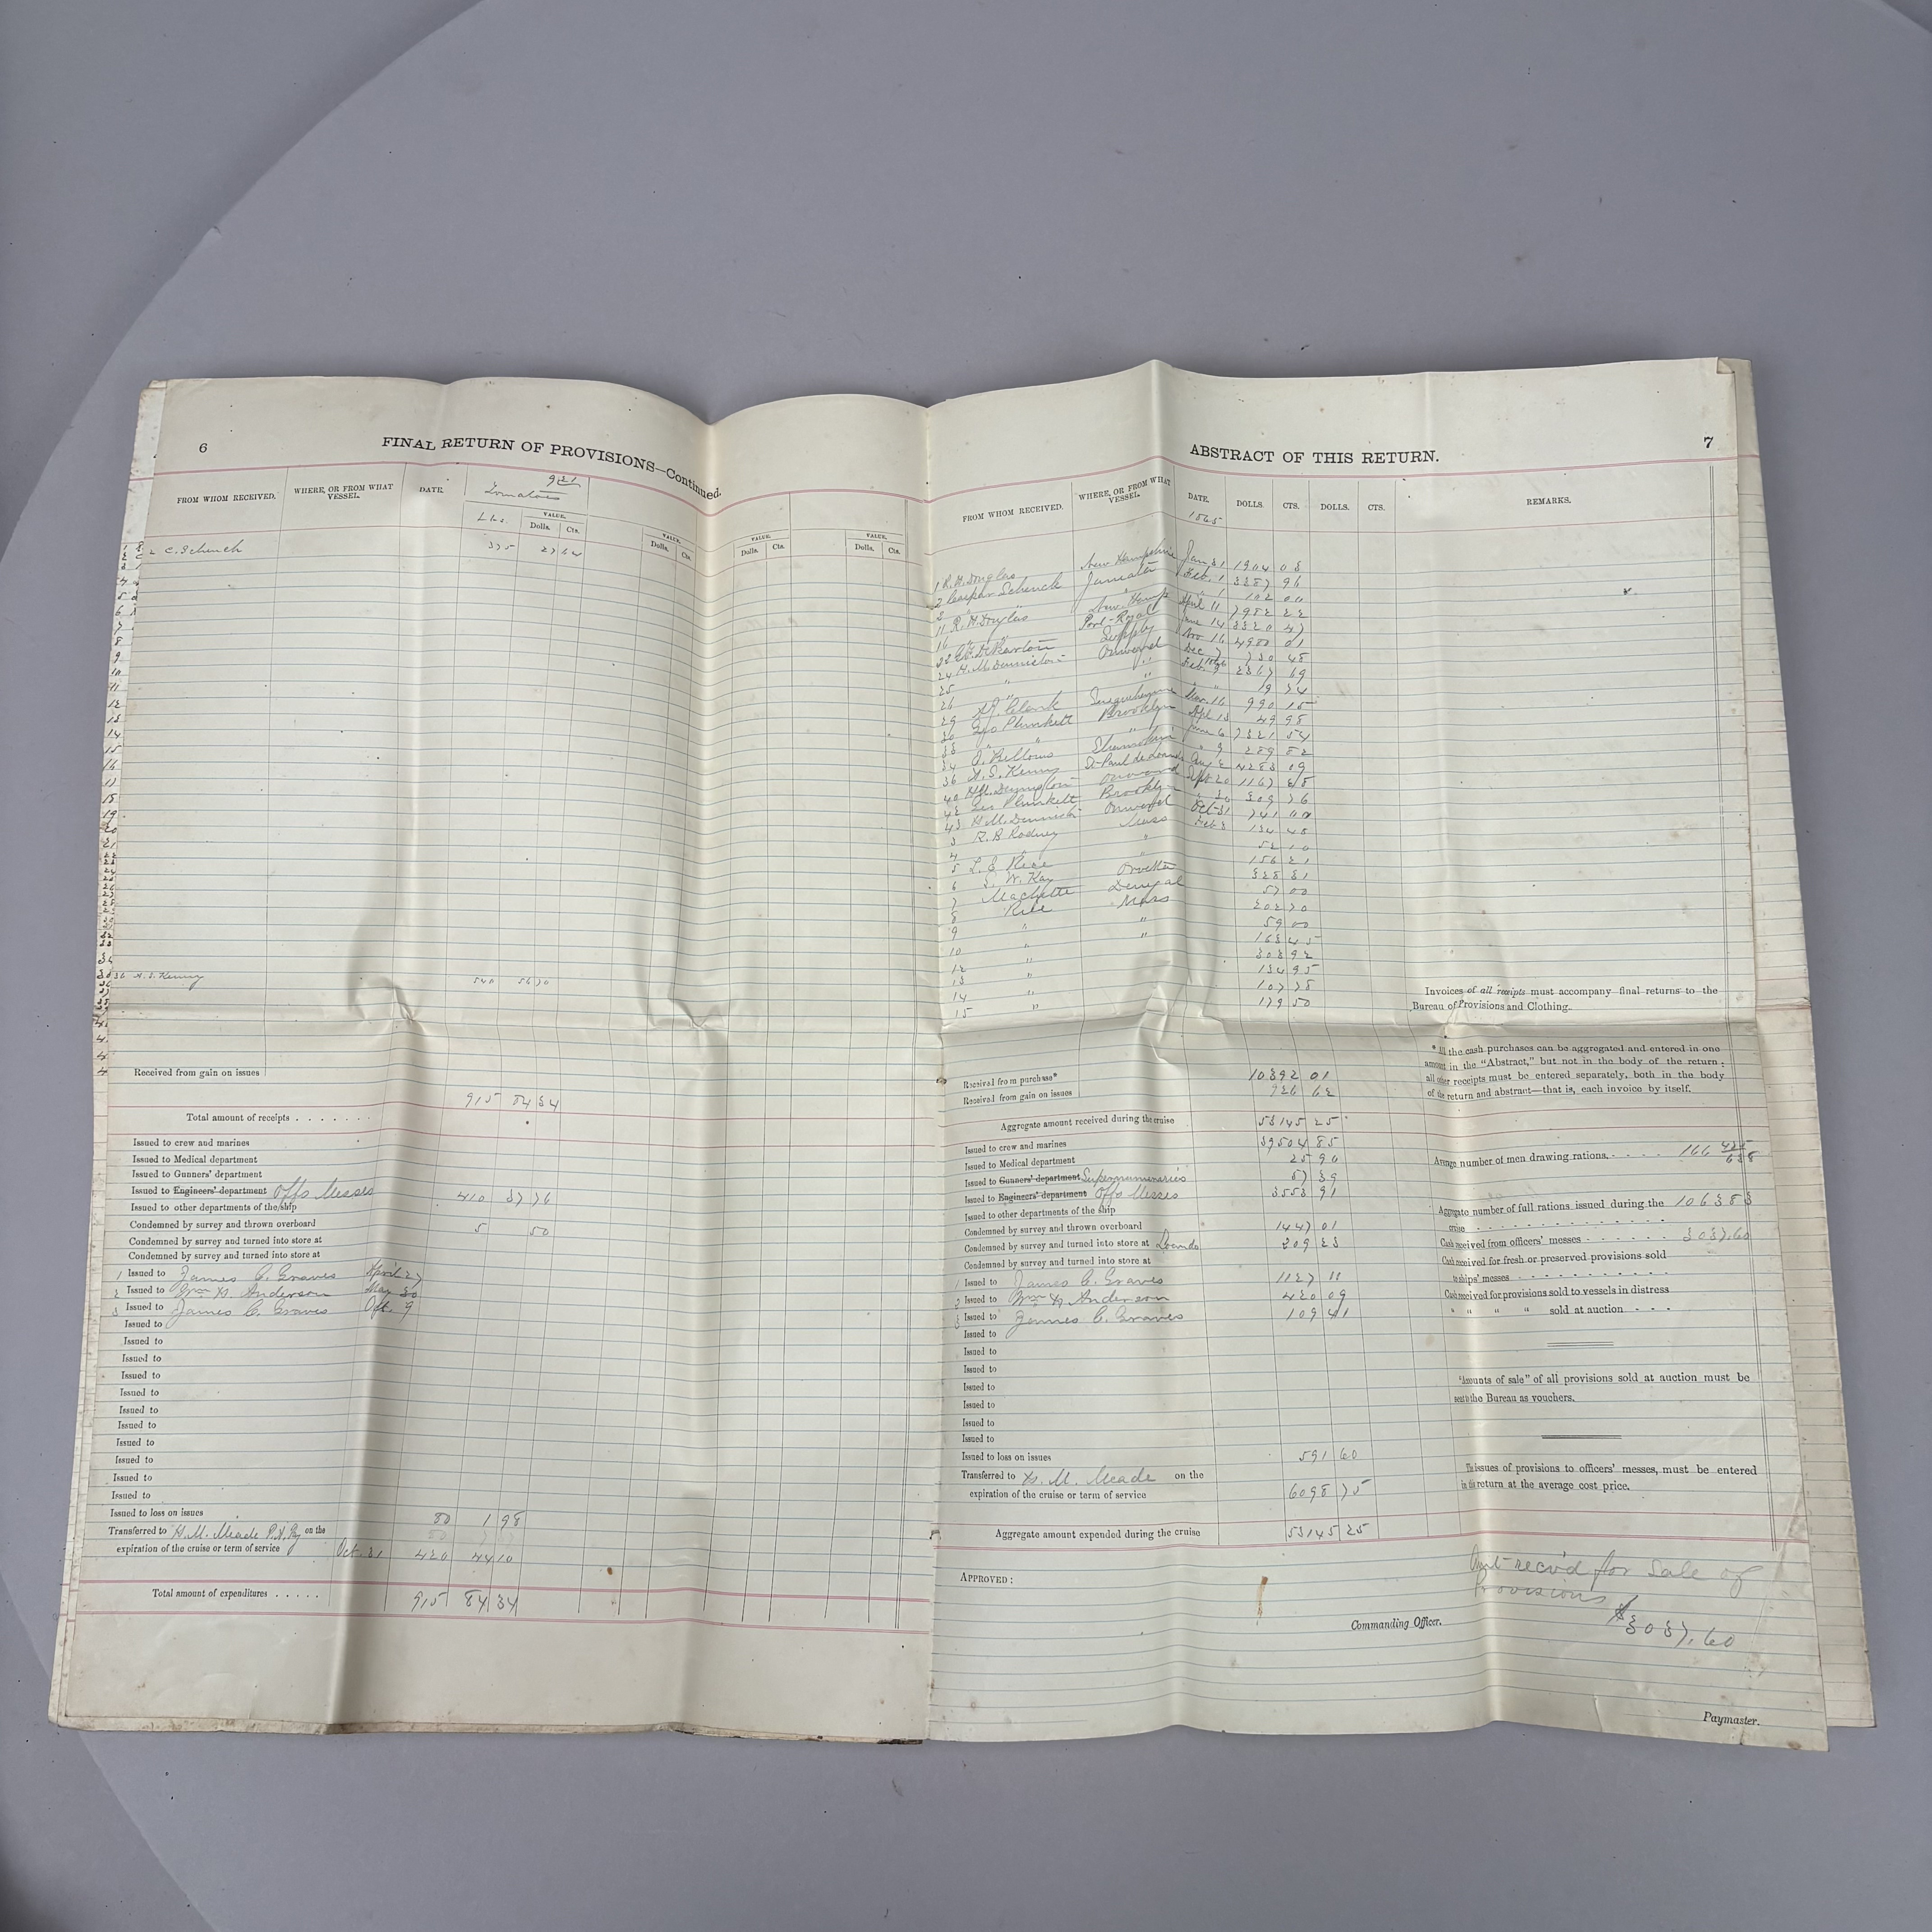 6
FINAL RETURN OF PROVISIONS—Continued.
FROM WHOM RECEIVED.
WHERE, OR FROM WHAT VESSEL.
DATE.
921
Tomatoes
Lbs.
VALUE.
Dolls. Cts.
VALUE.
Dolls. Cts.
VALUE.
Dolls. Cts.
VALUE.
Dolls. Cts.
2 C. Schenck 375 27 64
36 A. S. Kenny 540 56 70
Received from gain on issues
Total amount of receipts . . . . . . . 915 84 34
Issued to crew and marines
Issued to Medical department
Issued to Gunners' department
Issued to Engineers' department Offs Messes 410 37 76
Issued to other departments of the ship
Condemned by survey and thrown overboard 5 50
Condemned by survey and turned into store at
Condemned by survey and turned into store at
1 Issued to James C. Graves April 27
2 Issued to Wm H. Anderson May 30
3 Issued to James C. Graves Oct. 9
Issued to
Issued to
Issued to
Issued to
Issued to
Issued to
Issued to
Issued to
Issued to
Issued to
Issued to
Issued to loss on issues 80 1 98
Transferred to H. M. Meade P. A. Pay on the
expiration of the cruise or term of service Oct. 31 420 44 10
Total amount of expenditures . . . . . 915 84 34
ABSTRACT OF THIS RETURN.
7
FROM WHOM RECEIVED.
WHERE, OR FROM WHAT VESSEL.
DATE.
DOLLS. CTS. DOLLS. CTS.
REMARKS.
1865
1 R. H. Douglas New Hampshire Jan. 31 1904 03
2 Caspar Schenck Jamestn Feb. 1 3387 96
3 " " " 1 102 00
11 R. H. Douglas New. Hamp April 11 7982 22
16 " " Port-Royal June 14 3320 47
Supply Nov 16 4980 01
24 H. M. Denniston Onward Dec 7 730 48
25 " " Feb. 9 2367 69
26 " " " " 19 74
29 Clark Susquehanna Mar. 16 990 15
30 Geo Plunkett Brooklyn Apl. 13 49 98
33 " " " June 6 7321 54
34 J. Bellows " 9 289 82
36 A. S. Kenny St-Paul de Loando Aug 2 4283 09
40 H. M. Denniston Onward Sept 20 1167 28
42 Geo Plunkett Brooklyn " 30 309 76
43 H. M. Dennist. Onward Oct-31 741 00
3 R. B. Rodney Mass Feb. 3 134 48
4 " " 52 10
5 L. E. Rice " 156 21
6 S. W. Kay Orvetta 328 31
7 Machette Donegal 57 00
8 Rice Mass 202 70
9 " " 59 00
10 " " 163 45
12 " 303 92
13 " 134 95
14 " 107 78
15 " 179 50
Invoices of all receipts must accompany final returns to the
Bureau of Provisions and Clothing.
Received from purchase* 10392 01
Received from gain on issues 926 62
* All the cash purchases can be aggregated and entered in one
amount in the "Abstract," but not in the body of the return;
all other receipts must be entered separately, both in the body
of the return and abstract—that is, each invoice by itself.
Aggregate amount received during the cruise 53145 25
Issued to crew and marines 39504 85
Issued to Medical department 25 90
Issued to Gunners' department Supernumeraries 57 39
Issued to Engineers' department Offs Messes 3553 91
Issued to other departments of the ship
Condemned by survey and thrown overboard 1447 01
Condemned by survey and turned into store at Loando 209 23
Condemned by survey and turned into store at
1 Issued to James C. Graves 1127 11
2 Issued to Wm H. Anderson 420 09
3 Issued to James C. Graves 109 41
Issued to
Issued to
Issued to
Issued to
Issued to
Issued to
Issued to
Issued to loss on issues 591 60
Transferred to H. M. Meade on the
expiration of the cruise or term of service 6098 75
Aggregate amount expended during the cruise 53145 25
Average number of men drawing rations. - - - - 166 425/638
Aggregate number of full rations issued during the 106383
cruise - - - - - - - - - - - - -
Cash received from officers' messes - - - - - - 3037.60
Cash received for fresh or preserved provisions sold
to ships' messes - - - - - - - - - - -
Cash received for provisions sold to vessels in distress
" " " " sold at auction - - -
"Amounts of sale" of all provisions sold at auction must be
sent to the Bureau as vouchers.
The issues of provisions to officers' messes, must be entered
in this return at the average cost price.
APPROVED:
Commanding Officer.
Amt recv'd for Sale of
Provisions
$3037.60
Paymaster.